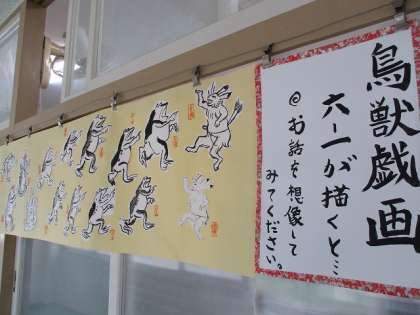 鳥獣戯画
六一が描くと…
@お話を想像して
みてください。